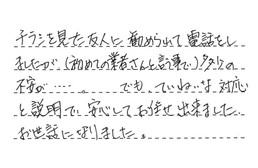 チラシを見た友人に勧められて電話をし
ましたが(初めての業者さんと言う事で)多少の
不安が・・・・。でも、ていねいな対応
と説明で、安心してお任せ出来ました。
お世話になりました。